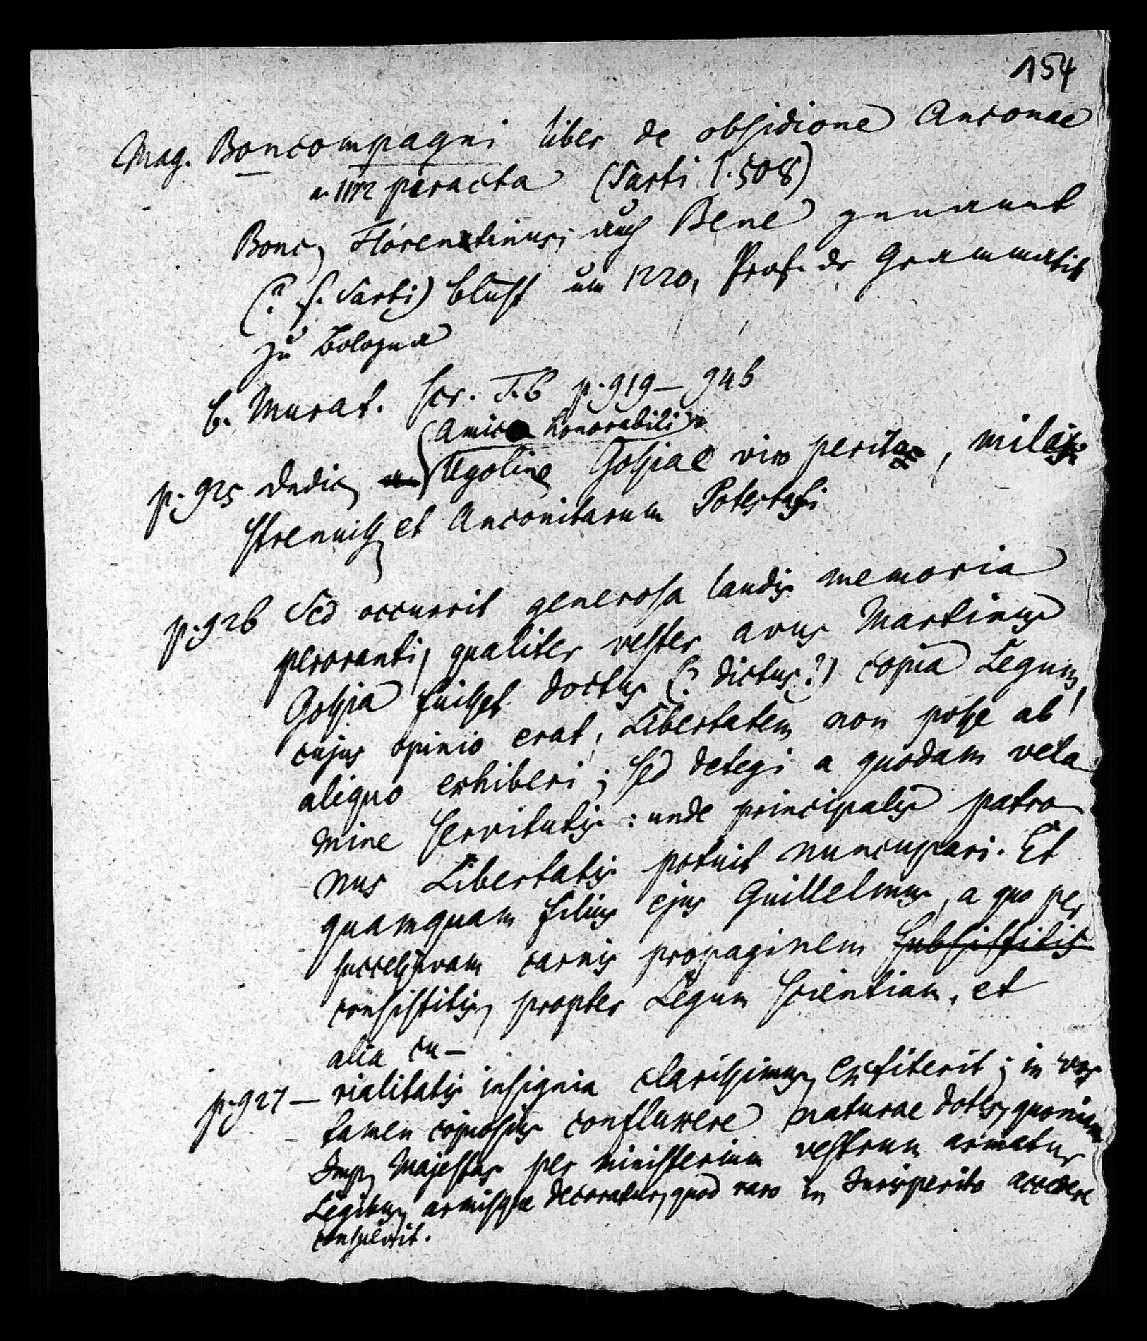 154
Mag. Boncompagni liber de obsidione Anconae
a. 1172 peracta (Sarti I. 508)
Bonc. Florentinus; auch Bene genannt
(? s. Sarti) blüht um 1220, Prof. der Grammatik
zu Bologna
b. Murat. Scr. T. 6 p. 919 – 946
Amico honorabili
p. 925 dedic. Ugolino Gossiae viro perito, militi
strenuiss. et Anconitarum Potestati
p. 926 Sed occurrit generosa laudis memoria
peroranti, qualiter vester avus Martinus
Gossia fuisset doctus (? dictus?) copia Legum,
cujus opinio erat, Libertatem non posse ab
aliquo exhiberi; sed detegi a quodam vela
mine servitutis: unde principalis patro
nus Libertatis potuit nuncupari. Et
quamquam filius ejus Guillelmus, a quo per
successivam carnis propaginem subsistitis
consistitis, propter Legum scientiam, et
alia cu–
p. 927 – rialitatis insignia clarissimus extiterit; in vos
tamen copiosius confluxere naturae dotes, quoniam
Imp. Majestas per ministerium vestrum armatur
Legibus, armisque decoratur, quod raro in Jurisperito accidere
consuevit.